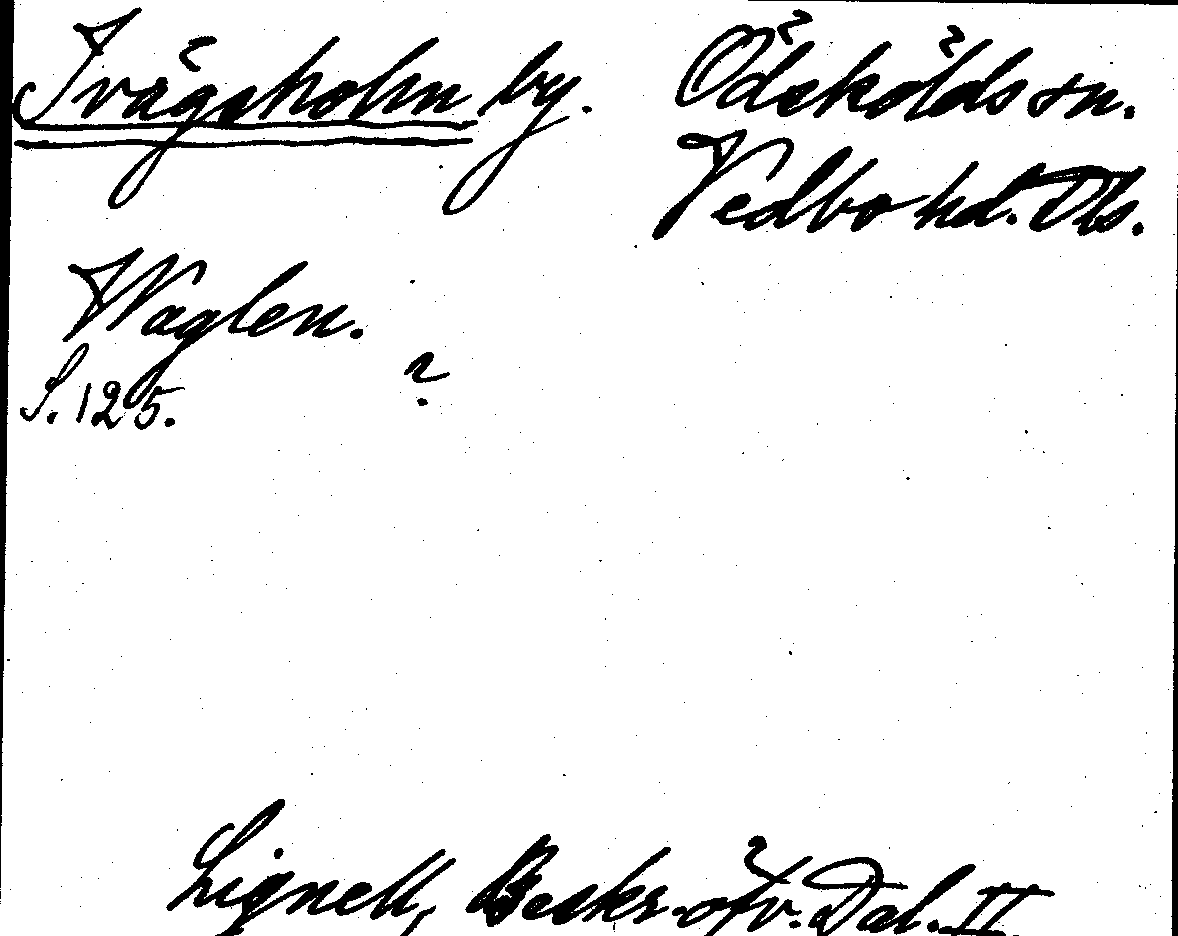 Ivägsholm by. Ödskölds sn.
Vedbo hd. Dls.
Waglen.
S. 125. ?
Lignell, Beskr. öfv. Dal. II